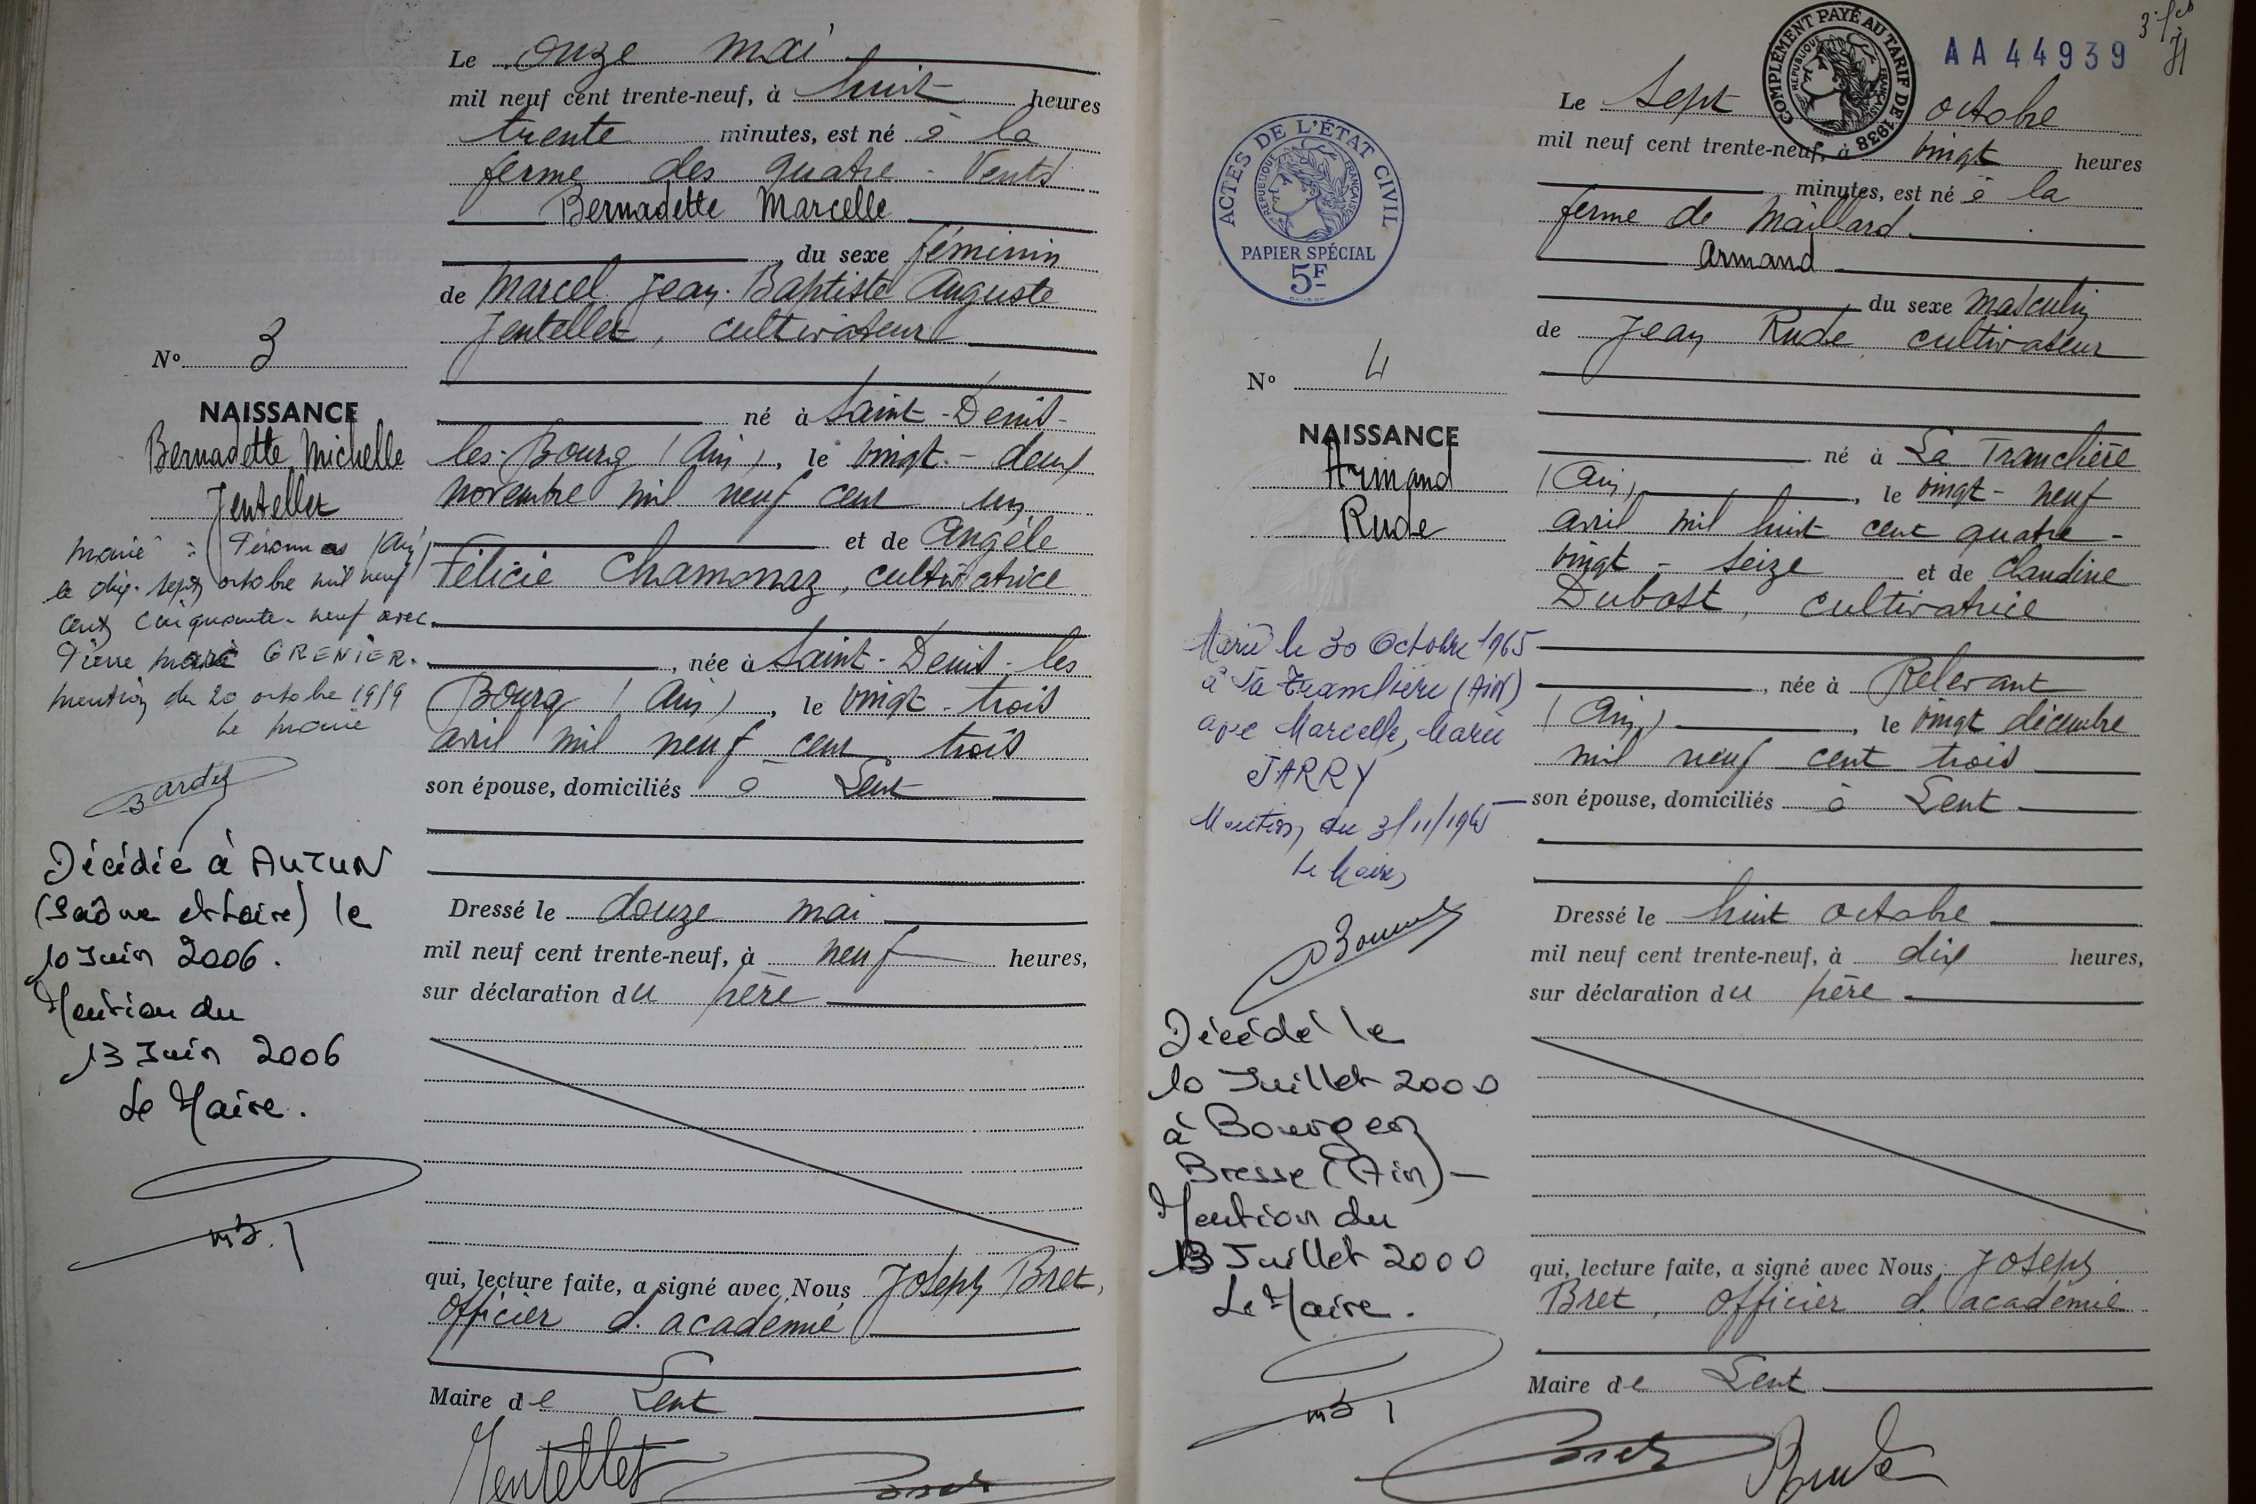 Le onze mai
mil neuf cent trente-neuf, à huit heures
trente minutes, est né à la
ferme des quatre-Vents
Bernadette Marcelle
, du sexe féminin
de Marcel Jean-Baptiste Auguste
Jentellet, cultivateur
né à Saint-Denis-
les-Bourg (Ain), le vingt-deux
novembre mil neuf cent un
et de Angèle
Félicie Chamonaz, cultivatrice
, née à Saint-Denis-les
Bourg (Ain), le vingt-trois
avril mil neuf cent trois
son épouse, domiciliés à Lent
Dressé le douze mai
mil neuf cent trente-neuf, à neuf heures,
sur déclaration du père
qui, lecture faite, a signé avec Nous Joseph Bret,
officier d'académie
Maire de Lent
Jentellet
Bret
No 3
NAISSANCE
Bernadette Michelle
Jentellet
Marié à Péronnas (Ain)
le dix-sept octobre mil neuf
cent cinquante-neuf avec
Pierre Marie GRENIER.
Mention du 20 octobre 1959
Le maire
Décédée à AUTUN
(Saône et Loire) le
10 Juin 2006.
Mention du
13 Juin 2006
Le Maire.
AA 44939
COMPLÉMENT PAYÉ AU TARIF DE 1938
RÉPUBLIQUE FRANÇAISE
Le sept octobre
mil neuf cent trente-neuf, à vingt heures
minutes, est né à la
ferme de Maillard
Armand
, du sexe masculin
de Jean Rude cultivateur
né à La Tranchère
(Ain), le vingt-neuf
avril mil huit cent quatre-
vingt-seize et de Claudine
Dubost, cultivatrice
, née à Relevant
(Ain), le vingt décembre
mil neuf cent trois
son épouse, domiciliés à Lent
Dressé le huit octobre
mil neuf cent trente-neuf, à dix heures,
sur déclaration du père
qui, lecture faite, a signé avec Nous, Joseph
Bret, officier d'académie
Maire de Lent
Bret Rude
ACTES DE L'ÉTAT CIVIL
RÉPUBLIQUE FRANÇAISE
PAPIER SPÉCIAL
5F
No 4
NAISSANCE
Armand
Rude
Marié le 30 Octobre 1965
à La Tranclière (Ain)
avec Marcelle, Marie
JARRY
Mention du 3/11/1965
Le Maire,
Décédé le
10 Juillet 2000
à Bourg en
Bresse (Ain) —
Mention du
13 Juillet 2000
Le Maire.